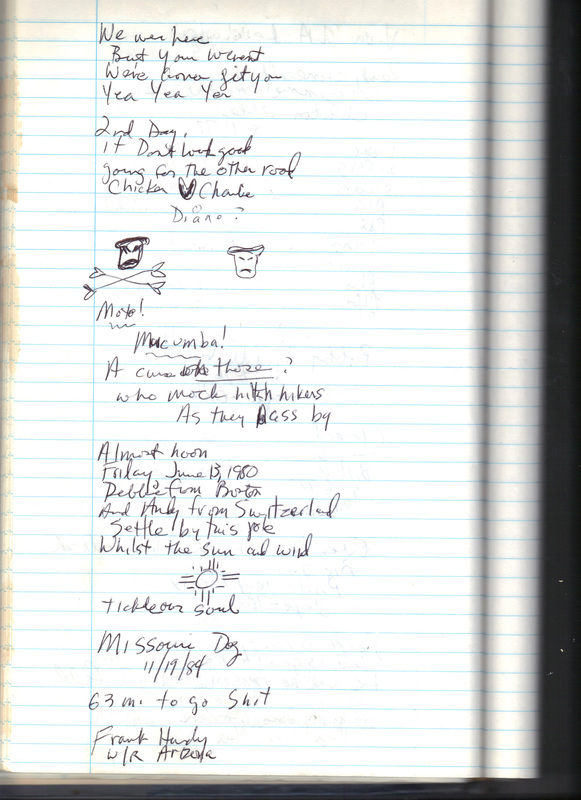 We were here
But you werent
We're gonna get you
Yea Yea Yea
2nd Day.
it Dont look good
going for the other road
Chicken Charlie
Diane?
Moto!
Macumba!
A curse those?
who mock hitch hikers
As they pass by
Almost noon
Friday June 13, 1980
Debbie from Boston
And Andy from Switzerland
Settle by this pole
Whilst the sun and wind
tickle our souls
Missouri Dog
11/19/84
63 mi. to go Shit
Frank Hardy
W/R Arizona